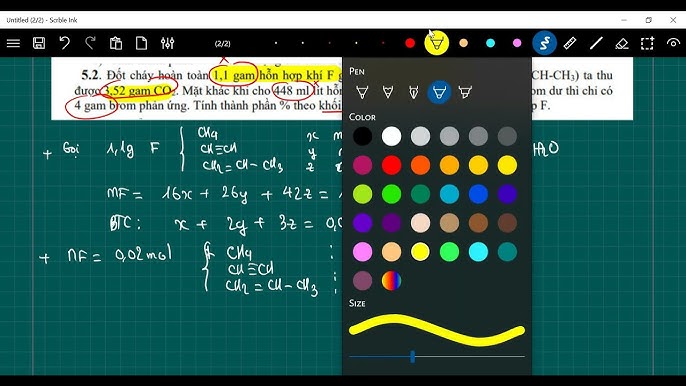 Untitled (2/2) - Scrble Ink
(2/2)
5.2. Đốt cháy hoàn toàn 1,1 gam hỗn hợp khí F g CH-CH₃) ta thu
được 3,52 gam CO₂. Mặt khác khi cho 448 ml lít hỗn om dư thì chỉ có
4 gam brom phản ứng. Tính thành phần % theo khối p F.
+ Gọi 1,1g F { CH₄ x m
CH≡CH y
CH₂=CH-CH₃ z
H₂O
mF = 16x + 26y + 42z = 1
BTC: x + 2y + 3z = 0,0
+ nF = 0,02 mol { CH₄ :
CH≡CH :
CH₂=CH-CH₃ :
PEN
COLOR
SIZE